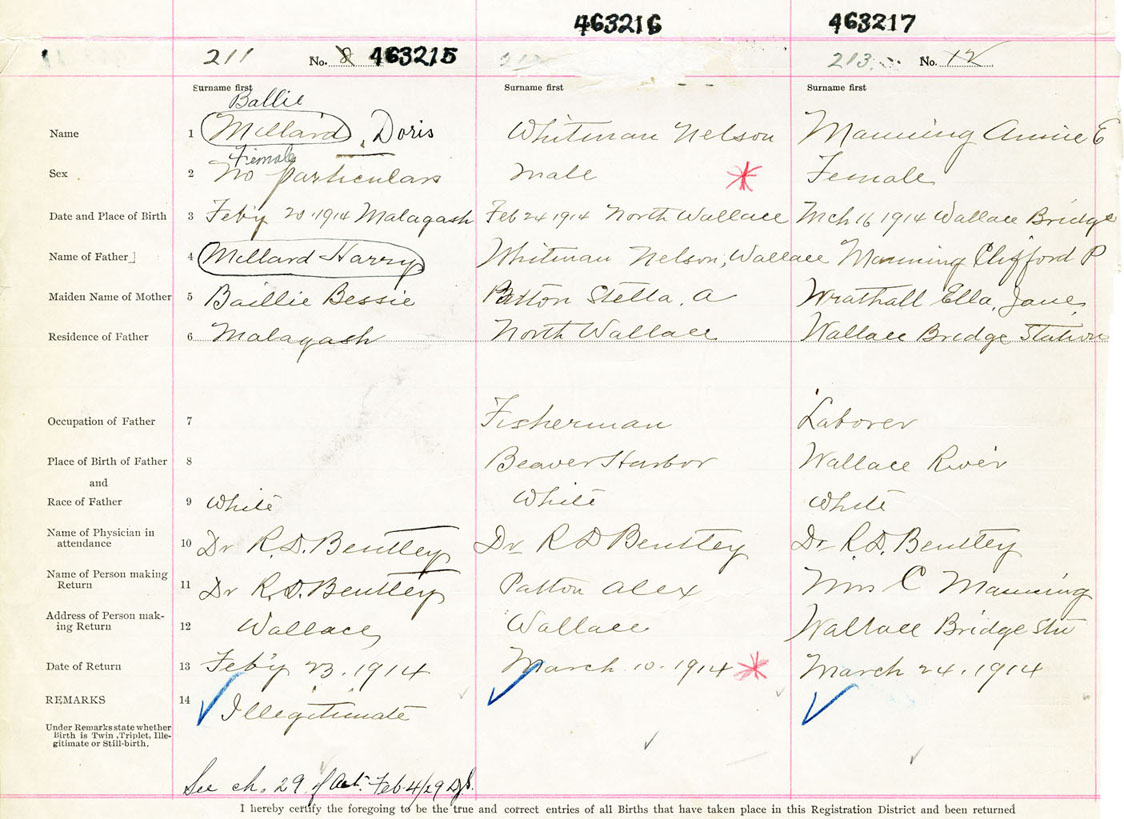 463216 463217
211 No. 8 463215 212 213 No. 12
Surname first Surname first Surname first
Ballie
Name 1 Millard, Doris Whitman Nelson Manning Annie E
Female
Sex 2 No particulars male Female
Date and Place of Birth 3 Feb'y 20 1914 Malagash Feb 24 1914 North Wallace Mch 16 1914 Wallace Bridge
Name of Father 4 Millard Harry Whitman Nelson, Wallace Manning Clifford P
Maiden Name of Mother 5 Baillie Bessie Patton Stella. A Wrathall Ella, Jane
Residence of Father 6 Malagash North Wallace Wallace Bridge Station
Occupation of Father 7 Fisherman Laborer
Place of Birth of Father 8 Beaver Harbor Wallace River
and
Race of Father 9 White White White
Name of Physician in
attendance 10 Dr R.D. Bentley Dr R D Bentley Dr R.D. Bentley
Name of Person making
Return 11 Dr R.D. Bentley Patton Alex Mrs C Manning
Address of Person mak-
ing Return 12 Wallace Wallace Wallace Bridge Stn
Date of Return 13 Feb'y 23. 1914 March 10. 1914 March 24. 1914
REMARKS 14 Illegitimate
Under Remarks state whether
Birth is Twin, Triplet, Ille-
gitimate or Still-birth.
See ch. 29 of Act. Feb 4/29
I hereby certify the foregoing to be the true and correct entries of all Births that have taken place in this Registration District and been returned